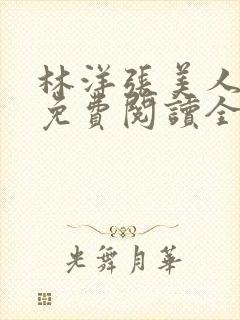 林洋張美人
免費閱讀全
光舞月華